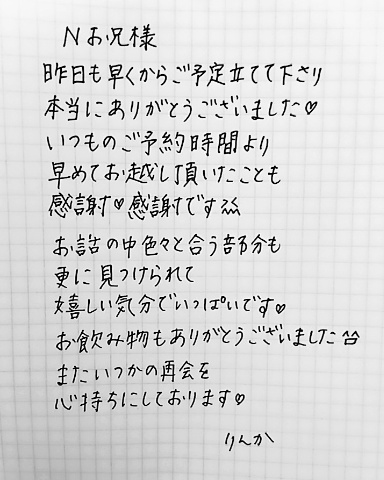 Nお兄様
昨日も早くからご予定立てて下さり
本当にありがとうございました♡
いつものご予約時間より
早めてお越し頂いたことも
感謝♡感謝です
お話の中色々と合う部分も
更に見つけられて
嬉しい気分でいっぱいです♡
お飲み物もありがとうございました^^
またいつかの再会を
心待ちにしております♡
りんか